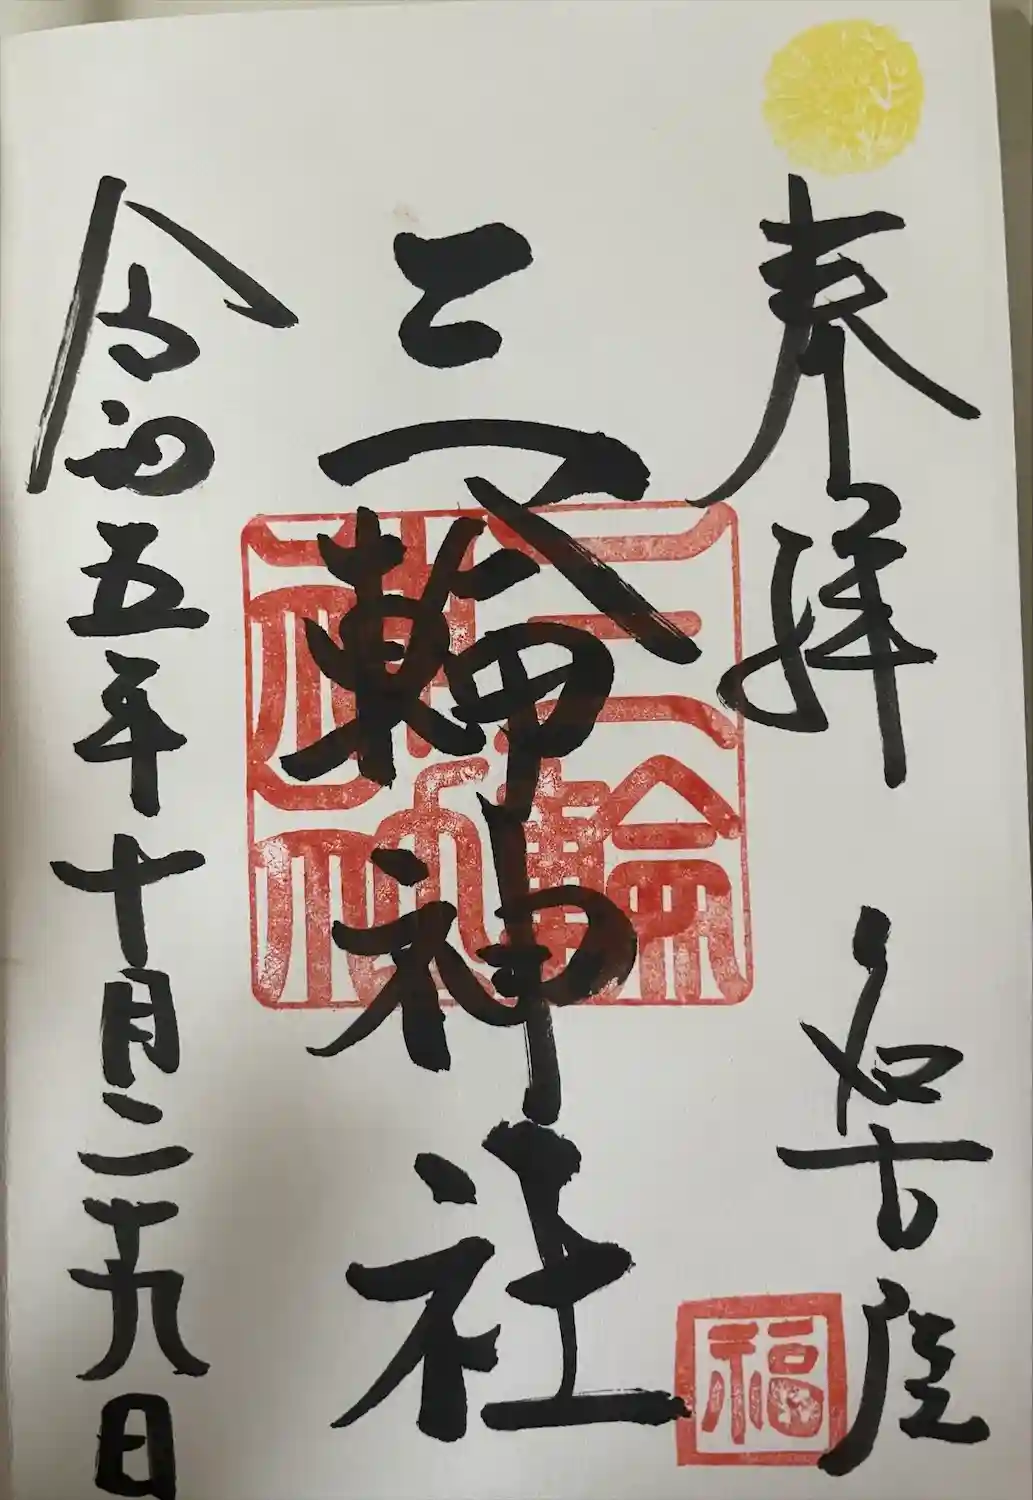 奉拝 名古屋
三輪神社
三輪神社
福
令和五年十月二十九日